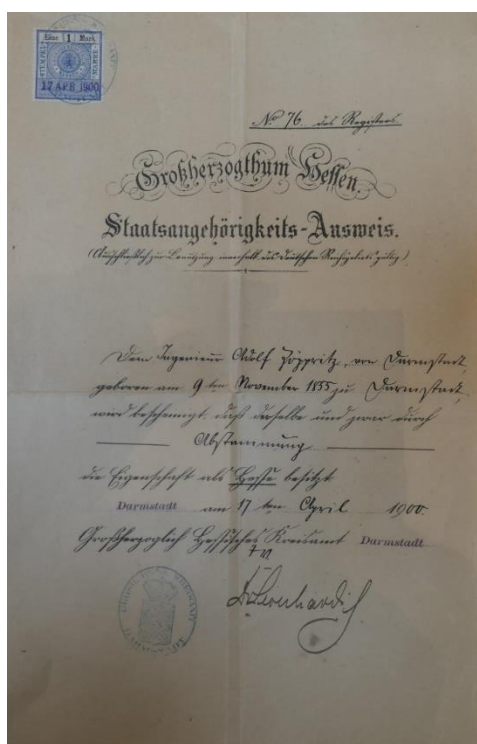 Eine 1 Mark
STEMPEL MARKE
17 APR 1900
No 76. des Registers.
Großherzogthum Hessen.
Staatsangehörigkeits-Ausweis.
(Ausschließlich zur Benutzung innerhalb des Deutschen Reichsgebiets gültig.)
Dem Ingenieur Adolf Zöppritz, von Darmstadt,
geboren am 9ten November 1855 zu Darmstadt,
wird bescheinigt, daß derselbe und zwar durch
Abstammung
die Eigenschaft als Hesse besitzt
Darmstadt am 17ten April 1900.
Großherzoglich Hessisches Kreisamt Darmstadt